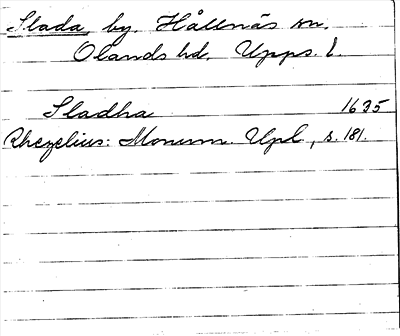 Slada, by, Hållnäs sn.
Olands hd. Upps. l.
Sladha 1635
Rhezelius: Monum. Upl., s. 181.